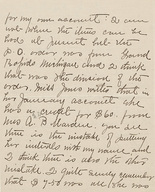 for my own account. I am
not where the items can be
had at present but the
P.O. order was from Grand
Rapids Michigan and I think
that was the division of the
order. Miss Jones writes that in
her January account she
has a credit for $60. from
Miss G. H. you see
there is the mistake of putting
her initials with my name and
I think there is also the
mistake. I quite surely remember
that $ 7.50 was all she was